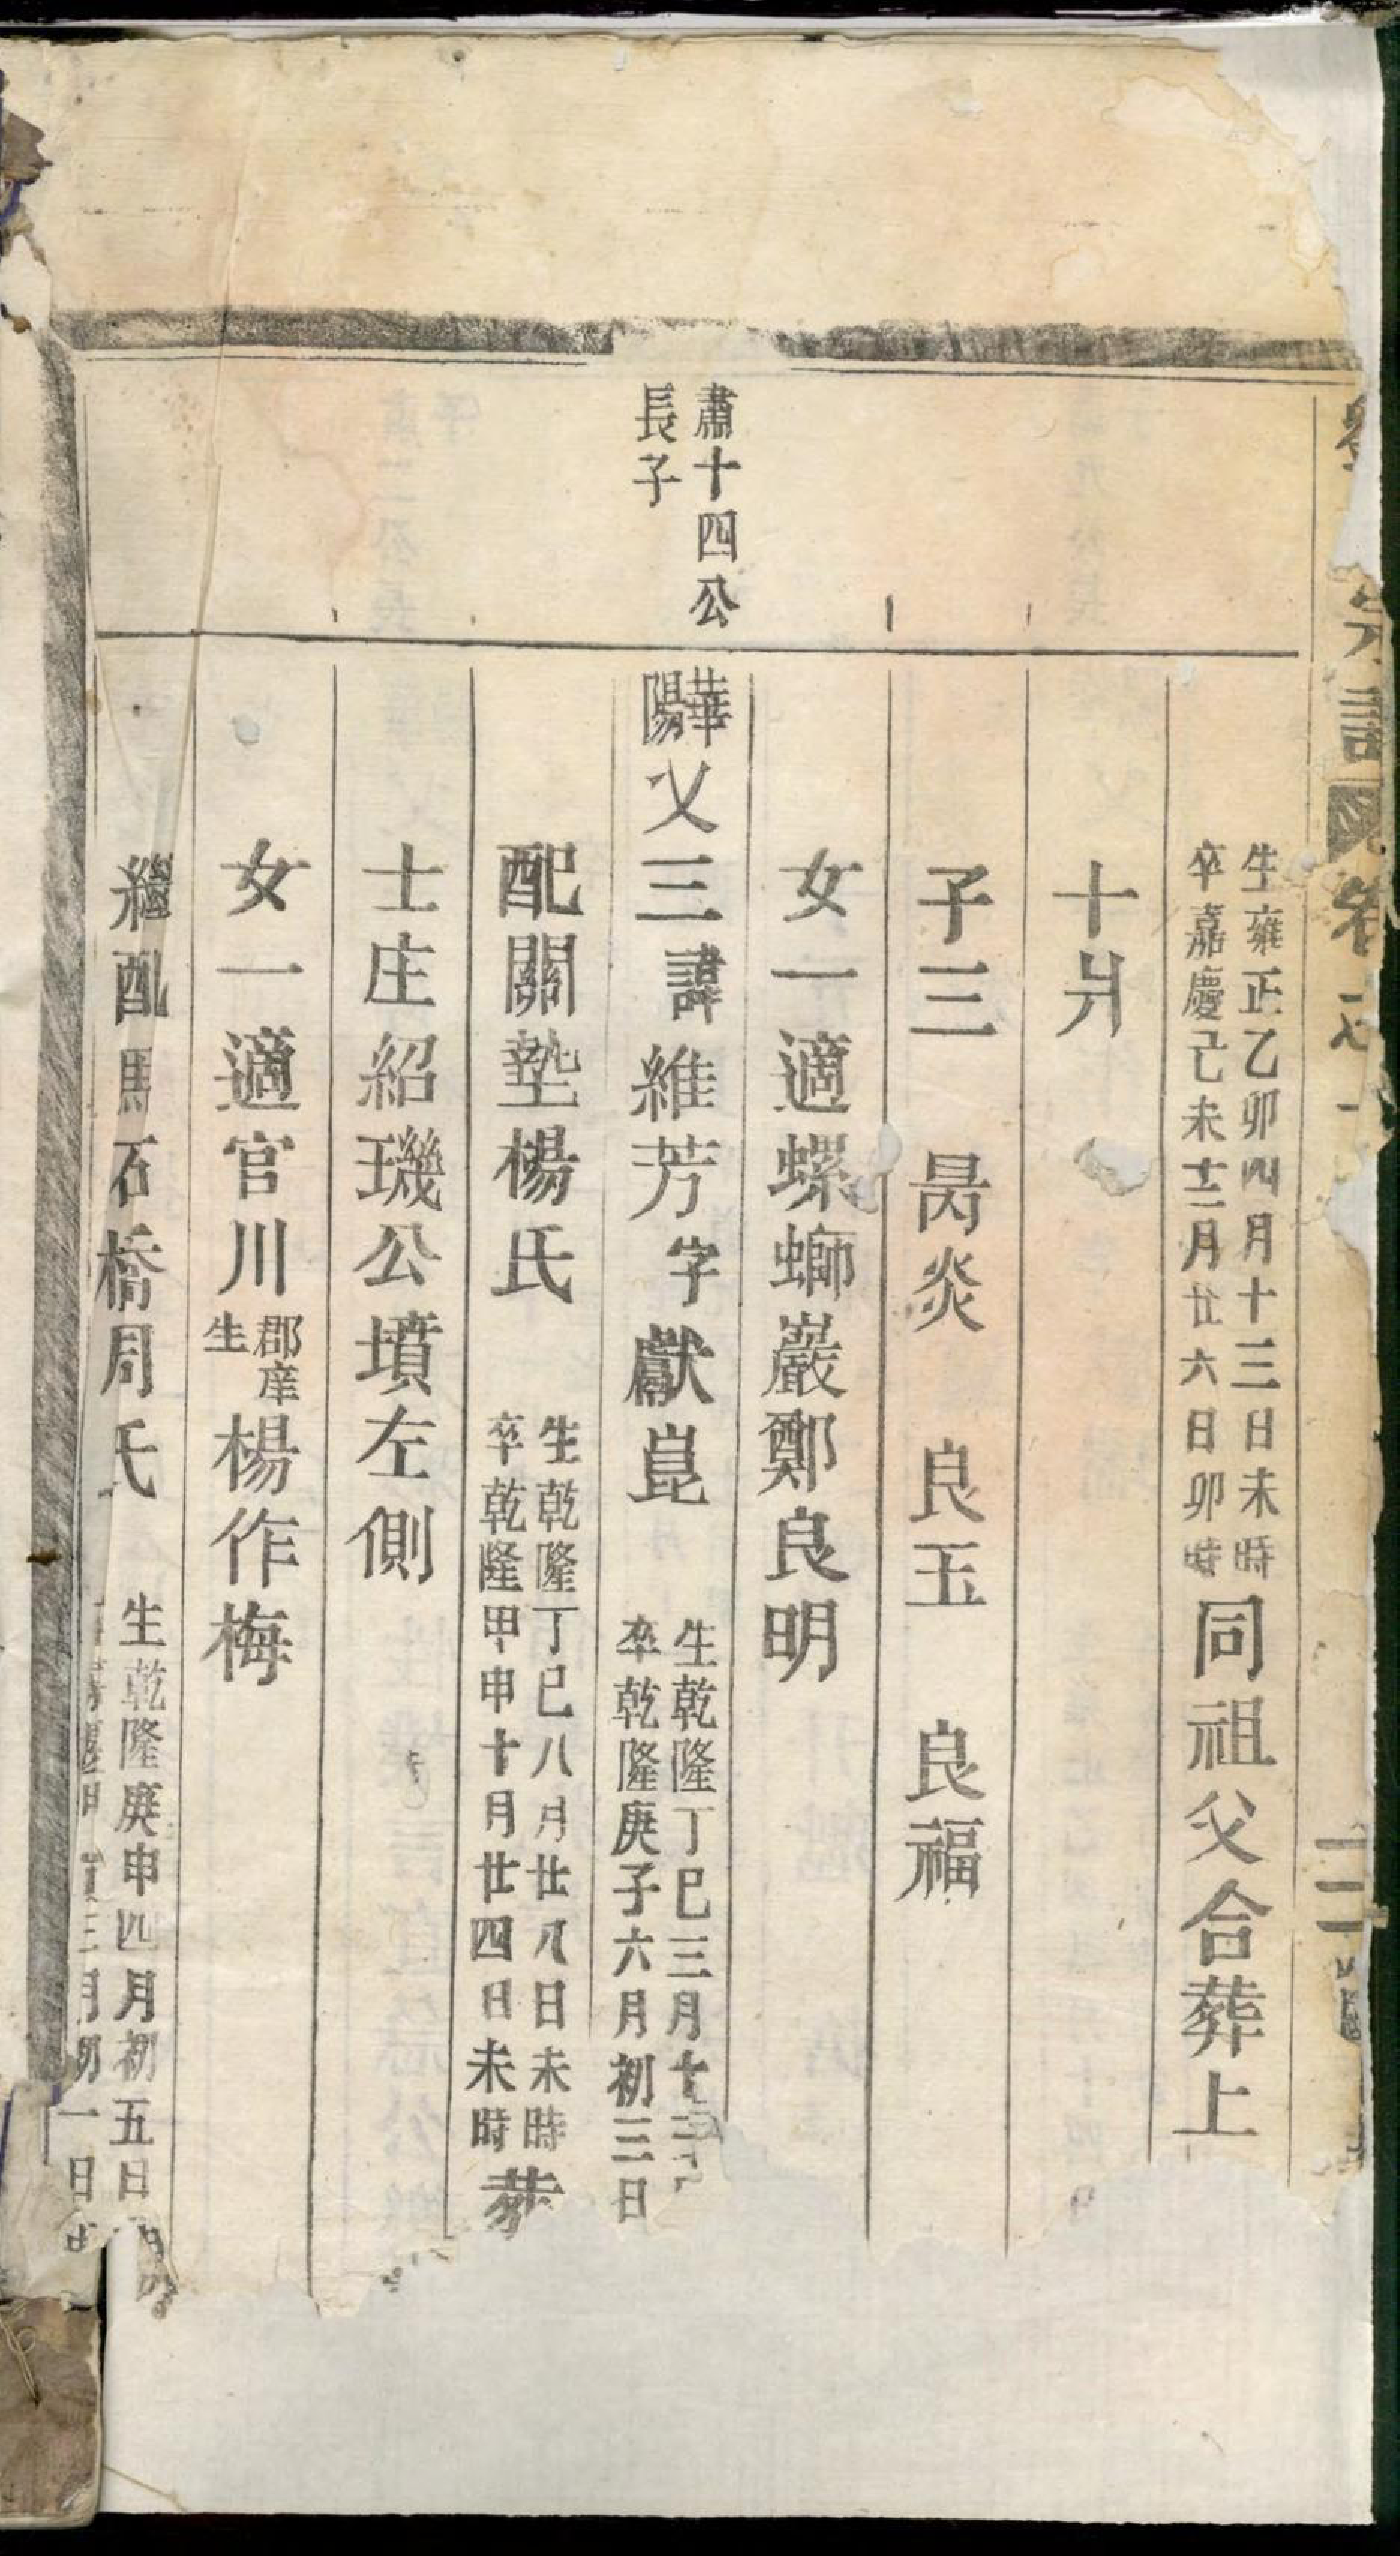 生雍正乙卯四月十三日未時
卒嘉慶己未十二月廿六日卯時
同祖父合葬上
十爿
子三 昺炎 良玉 良福
女一適螺螄巖鄭良明
肅十四公
長子
華陽乂三諱維芳字獻崑
生乾隆丁巳三月十三
卒乾隆庚子六月初三日
配關墊楊氏
生乾隆丁巳八月廿八日未時
卒乾隆甲申十月廿四日未時
葬
士庄紹璣公墳左側
女一適官川郡庠生楊作梅
繼配馬石橋周氏
生乾隆庚申四月初五日
三月初一日
譜 卷